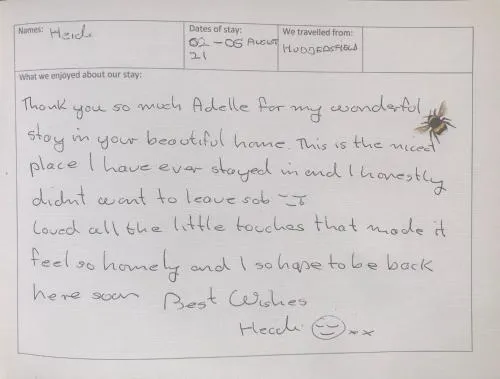 Names: Heidi
Dates of stay:
02 - 06 AUGUST
21
We travelled from:
HUDDERSFIELD
What we enjoyed about our stay:
Thank you so much Adelle for my wonderful
stay in your beautiful home. This is the nicest
place I have ever stayed in and I honestly
didnt want to leave sob
Loved all the little touches that made it
feel so homely and I so hope to be back
here soon Best Wishes
Heidi xx